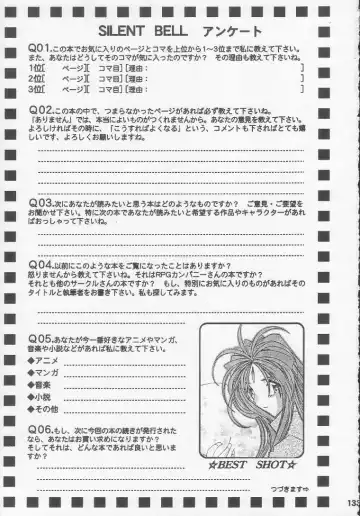 SILENT BELL　アンケート
Q01.この本でお気に入りのページとコマを上位から1〜3位まで私に教えて下さい。
また、あなたはどうしてそのコマが気に入ったのですか？　その理由も教えて下さいね。
1位[　　ページ][　　コマ目][理由：　　　]
2位[　　ページ][　　コマ目][理由：　　　]
3位[　　ページ][　　コマ目][理由：　　　]
Q02.この本の中で、つまらなかったページがあれば必ず教えて下さいね。
「ありません」では、本当によいものがつくれませんから。あなたの意見を教えて下さい。
よろしければその時に、「こうすればよくなる」という、コメントも下さればとても嬉
しいです、よろしくお願いしますね。
Q03.次にあなたが読みたいと思う本はどのようなものですか？　ご意見・ご要望を
お聞かせ下さい。特に次の本であなたが読みたいと希望する作品やキャラクターがあれ
ばおっしゃって下さいね。
Q04.以前にこのような本をご覧になったことはありますか？
怒りませんから教えて下さいね。それはRPGカンパニーさんの本ですか？
それとも他のサークルさんの本ですか？　もし、特別にお気に入りのものがあればその
タイトルと執筆者をお書き下さい。私も探してみます。
Q05.あなたが今一番好きなアニメやマンガ、
音楽や小説などがあれば私に教えて下さい。
◆アニメ
◆マンガ
◆音楽
◆小説
◆その他
Q06.もし、次に今回の本の続きが発行された
なら、あなたはお買い求めになりますか？
そしてそれは、どんな本であれば良いと思いま
すか？
☆BEST　SHOT☆
つづきます⇨
133